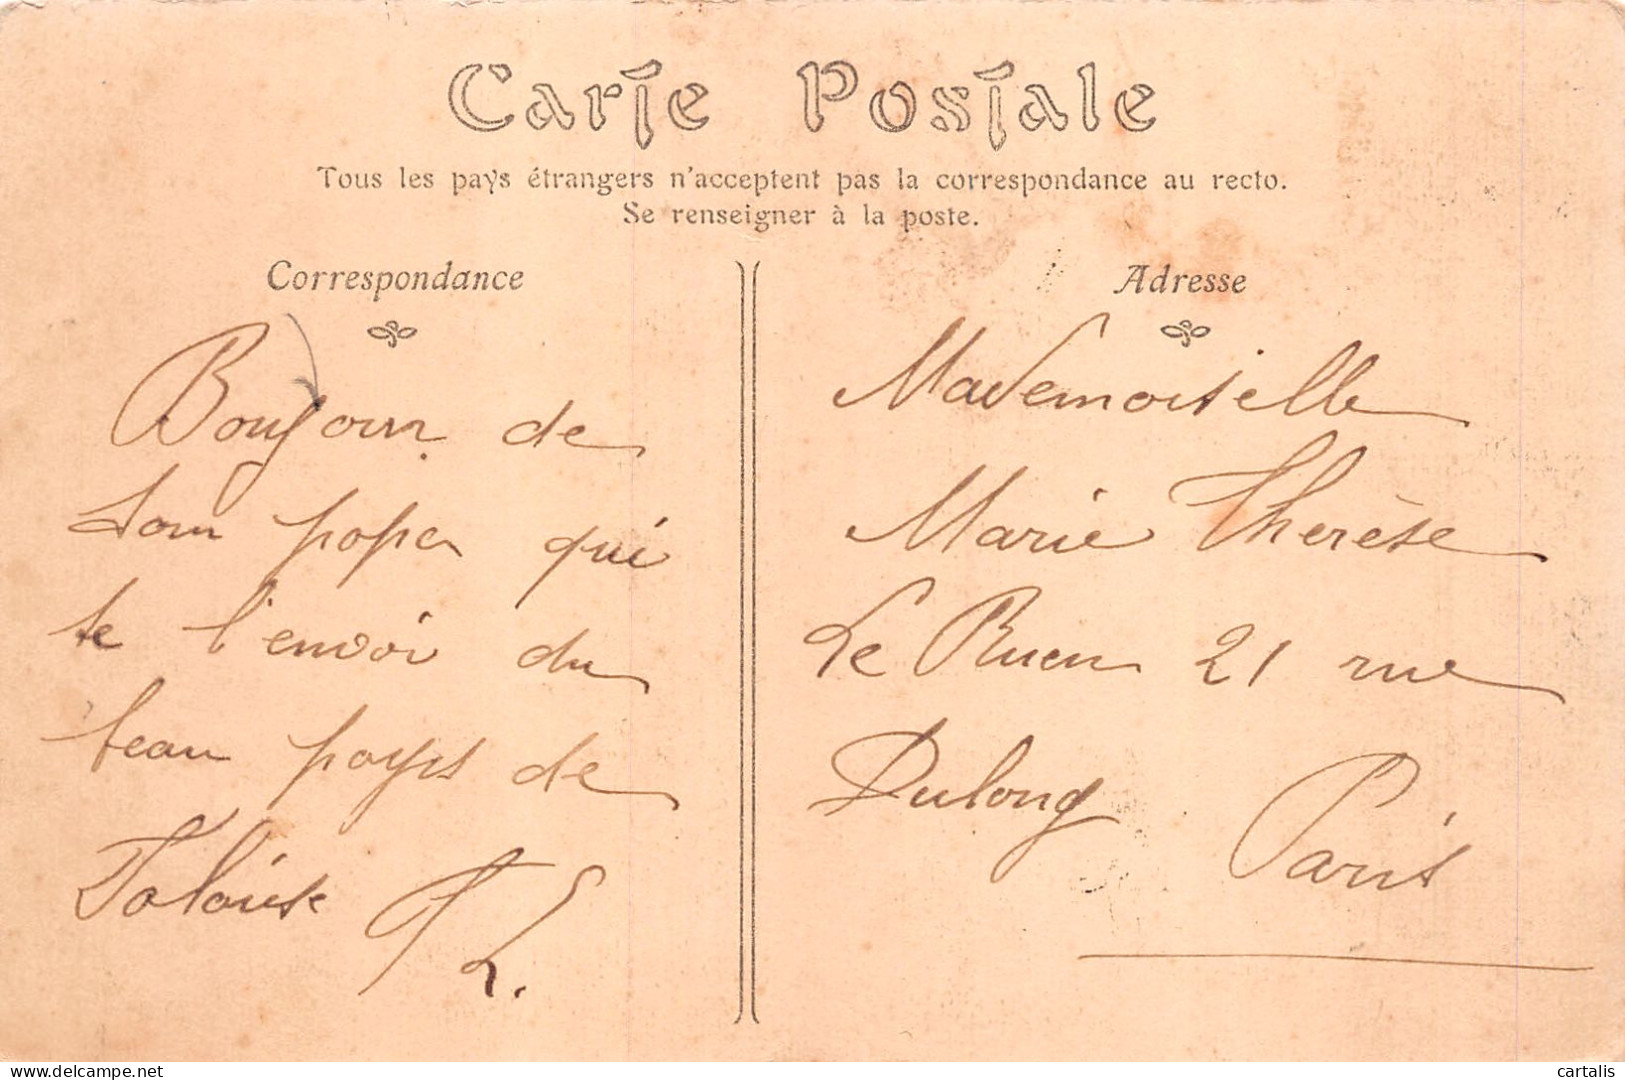 Carte Postale
Tous les pays étrangers n'acceptent pas la correspondance au recto.
Se renseigner à la poste.
Correspondance
Bonjour de
son papa qui
te l'envoi du
beau pays de
Taloise
Adresse
Mademoiselle
Marie Thérèse
Le Ruen 21 rue
Dulong Paris
delcampe.net
cartalis